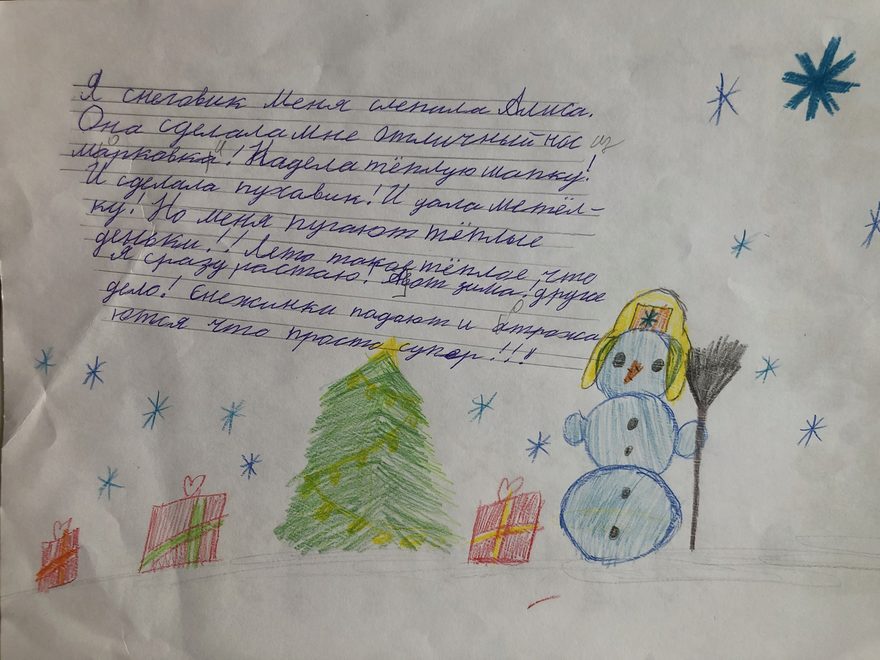 Я снеговик меня слепила Алиса.
Она сделала мне отличный нос из
марковки! Надела тёплую шапку!
И сделала пухавик! И дала метёл-
ку! Но меня пугают тёплые
деньки!!! Лето такое тёплое, что
я сразу растаю! А вот зима! другое
дело! Снежинки падают и
ются что просто супер!!!